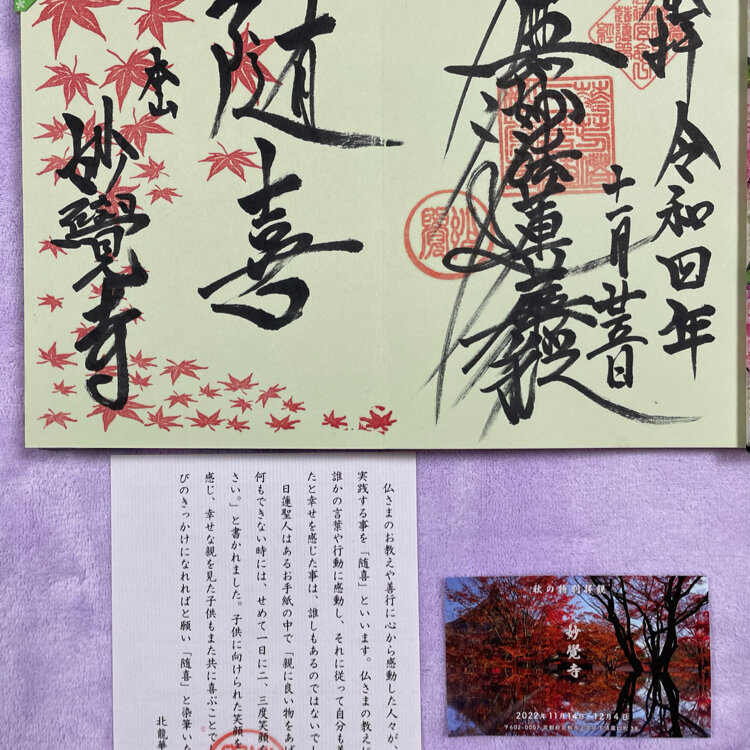 拝 令和四年
十一月廿五日
無妙法蓮華經
随喜
本山
妙覺寺
仏さまのお教えや善行に心から感動した人々が、
実践する事を「随喜」といいます。仏さまの教え
誰かの言葉や行動に感動し、それに従って自分も善
たと幸せを感じた事は、誰しもあるのではないでし
日蓮聖人はあるお手紙の中で「親に良い物をあげ
何もできない時には、せめて一日に二、三度笑顔を
さい。」と書かれました。子供に向けられた笑顔を
感じ、幸せな親を見た子供もまた共に喜ぶことで
びのきっかけになれればと願い「随喜」と染筆いた
北龍華
秋の特別拝観
妙覺寺
2022年11月14日-12月4日
〒602-0007 京都府京都市上京区下清蔵口町